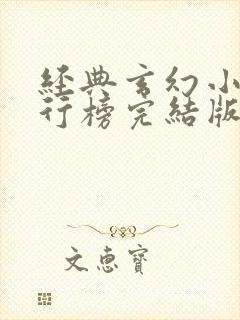 經典玄幻小
行榜完結版
文惠寶